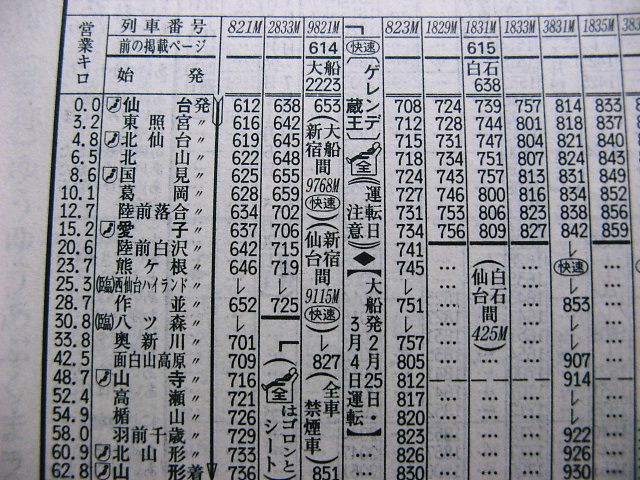 営業キロ 列車番号 821M 2833M 9821M 823M 1829M 1831M 1833M 3831M 1835M
前の掲載ページ 614 快速 615
始発 大船 2223 白石 638
0.0 仙台発 612 638 653 708 724 739 757 814 833
3.2 東照宮〃 616 642 712 728 744 801 818 837
4.8 北仙台〃 619 645 715 731 747 804 821 840
6.5 北山〃 622 648 718 734 751 807 824 843
8.6 国見〃 625 655 724 743 757 813 831 849
10.1 葛岡〃 628 659 727 746 800 816 834 852
12.7 陸前落合〃 634 702 731 753 806 823 838 856
15.2 愛子〃 637 706 734 756 809 827 842 859
20.6 陸前白沢〃 642 715 741 … レ
23.7 熊ケ根〃 646 719 745 … 快速 …
25.3 (臨)西仙台ハイランド〃 レ レ レ … レ …
28.7 作並〃 652 725 751 … 853 …
30.8 (臨)八ツ森〃 レ レ … レ …
33.8 奥新川〃 701 757 … レ …
42.5 面白山高原〃 709 827 805 … 907 …
48.7 山寺〃 716 812 914
52.4 高瀬〃 721 817 … レ …
54.9 楯山〃 726 820 … レ …
58.0 羽前千歳〃 729 823 … 922 …
60.9 北山形〃 733 826 … 926 …
62.8 山形着 736 851 830 … 930 …
大船新宿間 9768M 快速
新宿仙台間 9115M 快速
全車禁煙車
ゲレンデ蔵王
全
運転日注意
◆
【大船発2月25日・3月4日運転】
白石仙台間 425M
全
はゴロンとシート